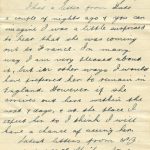 I had a letter from Lass
a couple of nights ago & you can
imagine I was a little surprised
to hear that she was coming
out to France. In many
ways I am very pleased about
it, but in other ways I would
have preferred her to remain in
England. However if she
comes out here within the
next days, & to the place I
expect her to I think I will
have a chance of seeing her.
Latest letters from